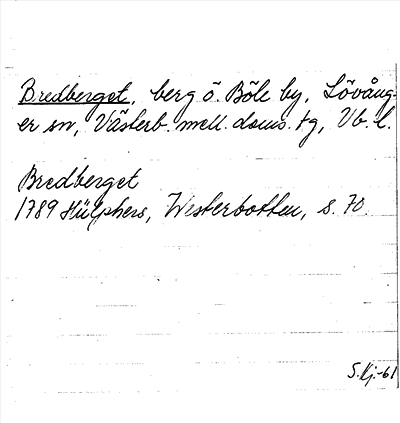 Bredberget, berg ö. Böle by, Lövång-
er sn, Västerb. mell. doms. tg, Vb. l.
Bredberget
1789 Hülphers, Westerbotten, s. 70.
S.Kj.-61